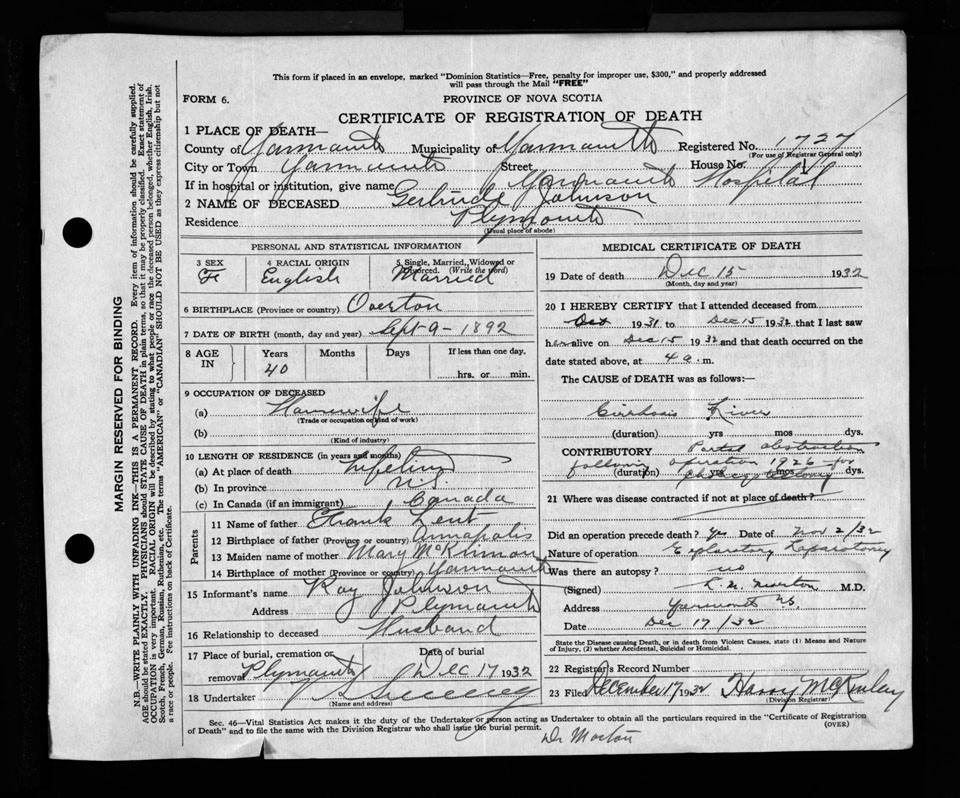 This form if placed in an envelope, marked "Dominion Statistics—Free, penalty for improper use, $300," and properly addressed
will pass through the Mail "FREE"
FORM 6.
PROVINCE OF NOVA SCOTIA
CERTIFICATE OF REGISTRATION OF DEATH
1 PLACE OF DEATH—
County of Yarmouth Municipality of Yarmouth Registered No. 1727
(For use of Registrar General only)
City or Town Yarmouth Street House No.
If in hospital or institution, give name Yarmouth Hospital
2 NAME OF DECEASED Gertrude Johnson
Residence Plymouth
(Usual place of abode)
PERSONAL AND STATISTICAL INFORMATION
3 SEX 4 RACIAL ORIGIN 5 Single, Married, Widowed or
Divorced. (Write the word)
F English Married
6 BIRTHPLACE (Province or country) Overton
7 DATE OF BIRTH (month, day and year) Sept 9 - 1892
8 AGE IN Years Months Days If less than one day,
40 hrs. or min.
9 OCCUPATION OF DECEASED
(a) Housewife
(Trade or occupation or kind of work)
(b)
(Kind of industry)
10 LENGTH OF RESIDENCE (in years and months)
(a) At place of death Lifetime
(b) In province N.S.
(c) In Canada (if an immigrant) Canada
Parents
11 Name of father Frank Lent
12 Birthplace of father (Province or country) Annapolis
13 Maiden name of mother Mary McKinnon
14 Birthplace of mother (Province or country) Yarmouth
15 Informant's name Ray Johnson
Address Plymouth
16 Relationship to deceased Husband
17 Place of burial, cremation or Date of burial
removal Plymouth Dec 17 1932
18 Undertaker V S Sweeney
(Name and address)
MEDICAL CERTIFICATE OF DEATH
19 Date of death Dec 15 1932
(Month, day and year)
20 I HEREBY CERTIFY that I attended deceased from
Oct 1931 to Dec 15 1932 that I last saw
her alive on Dec 15 1932 and that death occurred on the
date stated above, at 4 a. m.
The CAUSE of DEATH was as follows:—
Cirrhosis Liver
(duration) yrs mos dys.
CONTRIBUTORY Portal obstruction
following operation 1926 for
(duration) yrs mos dys.
21 Where was disease contracted if not at place of death?
Did an operation precede death? Yes Date of Nov 2/32
Nature of operation Exploratory Laparotomy
Was there an autopsy? no
(Signed) L. M. Morton M.D.
Address Yarmouth NS.
Date Dec 17/32
State the Disease causing Death, or in death from Violent Causes, state (1) Means and Nature
of Injury, (2) whether Accidental, Suicidal or Homicidal.
22 Registrar's Record Number
23 Filed December 17 1932 Harry McKinley
(Division Registrar)
Sec. 46—Vital Statistics Act makes it the duty of the Undertaker or person acting as Undertaker to obtain all the particulars required in the "Certificate of Registration
of Death" and to file the same with the Division Registrar who shall issue the burial permit.
(OVER)
Dr Morton
MARGIN RESERVED FOR BINDING
N.B.—WRITE PLAINLY WITH UNFADING INK—THIS IS A PERMANENT RECORD. Every item of information should be carefully supplied.
AGE should be stated EXACTLY. PHYSICIANS should STATE CAUSE OF DEATH in plain terms, so that it may be properly classified. Exact statement of
OCCUPATION is very important. RACIAL ORIGIN will be described by stating to what people or race the deceased person belonged, whether English, Irish,
Scotch, French, German, Russian, Ruthenian, etc. The terms "AMERICAN" or "CANADIAN" SHOULD NOT BE USED as they express citizenship but not
a race or people. Fee instructions on back of Certificate.